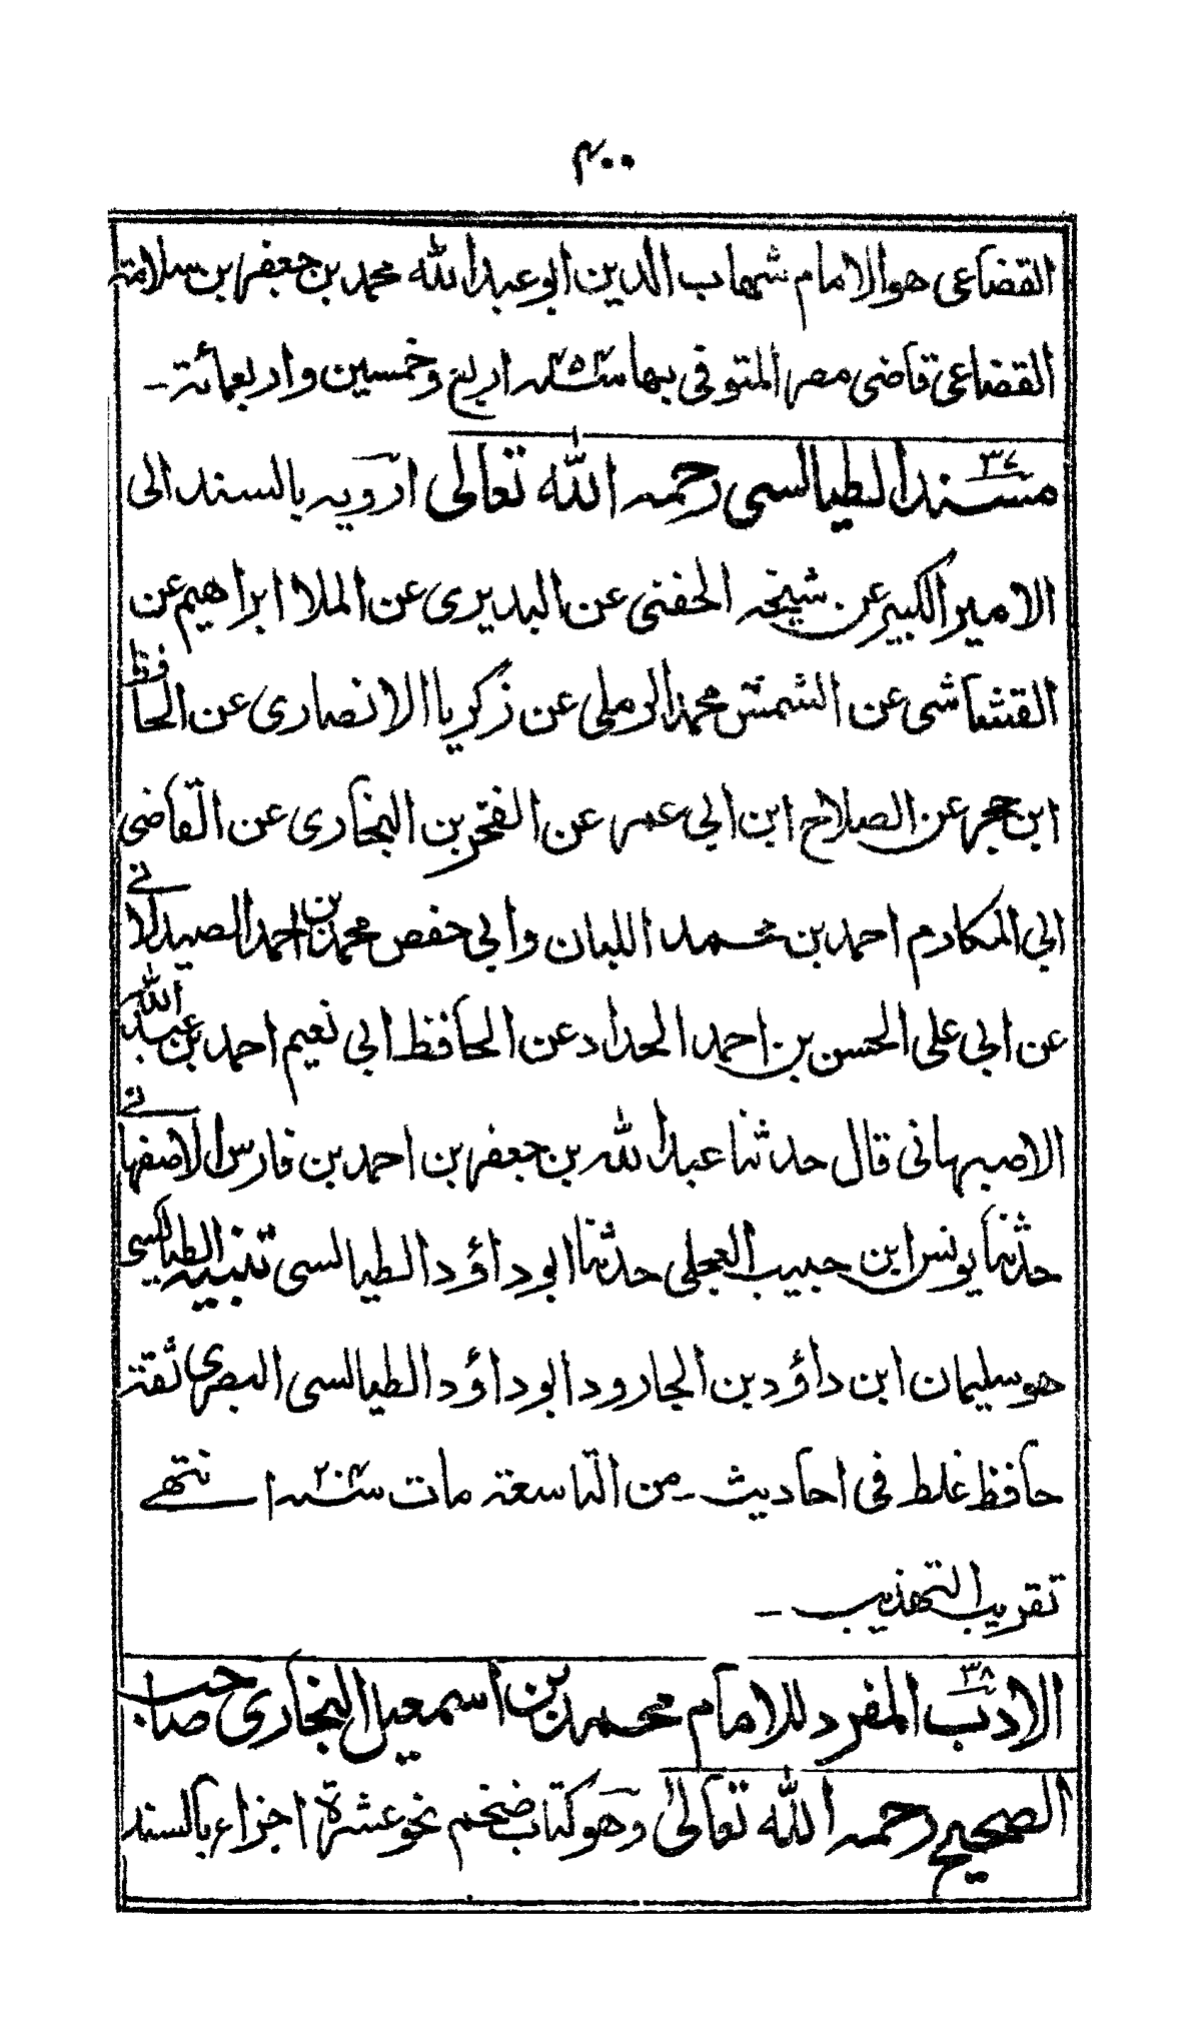 ۴۰۰
القضاعی هو الامام شهاب الدین ابو عبد الله محمد بن جعفر ابن سلامة
القضاعی قاضی مصر المتوفی بها سنه ۴۵۴ اربع وخمسین واربعمائة۔
۳۷ مسند الطیالسی رحمه الله تعالی ارویه بالسند الی
الامیر الکبیر عن شیخه الحفنی عن البدیری عن الملا ابراهیم عن
القشاشی عن الشمس محمد الرملی عن زکریا الانصاری عن الحافظ
ابن حجر عن الصلاح ابن ابی عمر عن الفخر بن البخاری عن القاضی
ابی المکارم احمد بن محمد اللبان وابی حفص محمد بن احمد الصیدلانی
عن ابی علی الحسن بن احمد الحداد عن الحافظ ابی نعیم احمد بن عبد الله
الاصبهانی قال حدثنا عبد الله بن جعفر بن احمد بن فارس الاصفهانی
حدثنا یونس ابن حبیب العجلی حدثنا ابو داؤد الطیالسی تنبیه الطیالسی
هو سلیمان ابن داؤد بن الجارود ابو داؤد الطیالسی البصری ثقة
حافظ غلط فی احادیث۔ من التاسعة مات سنه ۲۰۴ انتهے
تقریب التهذیب۔
۳۸ الادب المفرد للامام محمد بن اسمعیل البخاری صاحب
الصحیح رحمه الله تعالیٰ وهو کتاب ضخم نحو عشرة اجزاء بالسند